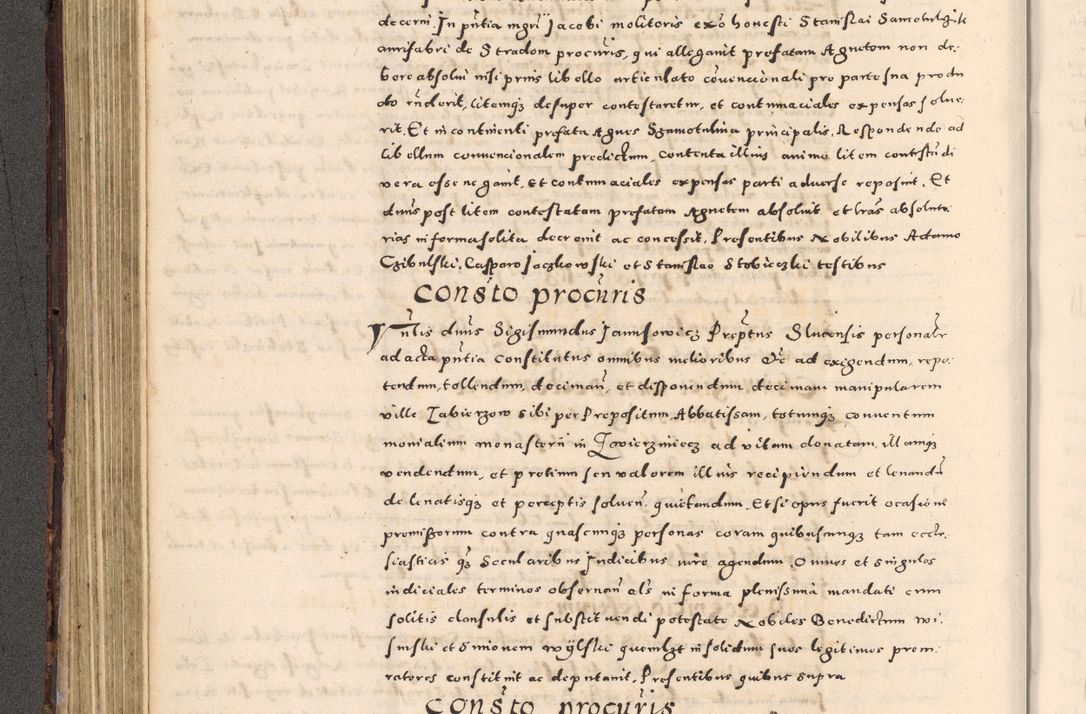 decerni In pñtia mgri Jacobi molitoris exõ honesti Stanislai Samotulczik
aurifabri de Stradom procuris, qui allegavit prefatam Agnetem non de-
bere absolui nisi prius libello articulato cõvencionali pro parte sua produ
cto rñderit, litemqz desuper contestaretur, et contumaciales expensas solue-
rit. Et in continenti prefata Agnes Szamotulina principalis, Respondendo ad
libellum convencionalem predictum, contenta illius animo litem contestãdi
vera esse negavit, et contumaciales expensas parti adverse reposuit. Et
dnus post litem contestatam prefatam Agnetem absoluit et lras absoluto-
rias in forma solita decrevit ac concessit, Presentibus Nobilibus Adamo
Czibulski, Casparo Jaczkowski et Stanislao Stobieczki testibus
Consto procuris
Pñtis dnus Sigismundus Janusowicz Preptus Slucensis personalr
ad acta pñtia constitutus omnibus melioribus etc ad exigendum, repe-
tendum, tollendum, decimañ, et disponendum decimam manipularem
ville Zabierzow sibi per Prepositum, Abbatissam, totumqz conventum
monialium monasterii in Zwierzyniecz ad vitam donatam, illamqz
vendendum, et pretium seu valorem illius recipiendum et levandũ
de levatisqz et perceptis solveñ, quietandum. Et si opus fuerit ocasione
premissorum contra quascunqz personas coram quibuscunqz tam eccle-
siasticis qz Secularibus Judicibus iure agendum. Omnes et singulos
iudiciales terminos observañ als in forma plenissima mandati cum
solitis clausulis et substituendi potestate Nobiles Benedictum Wi-
sinski et Simonem Wÿlski quemlzt insolidum suos legitimos procu-
ratores constituit ac deputavit. Presentibus quibus supra
Consto procuris